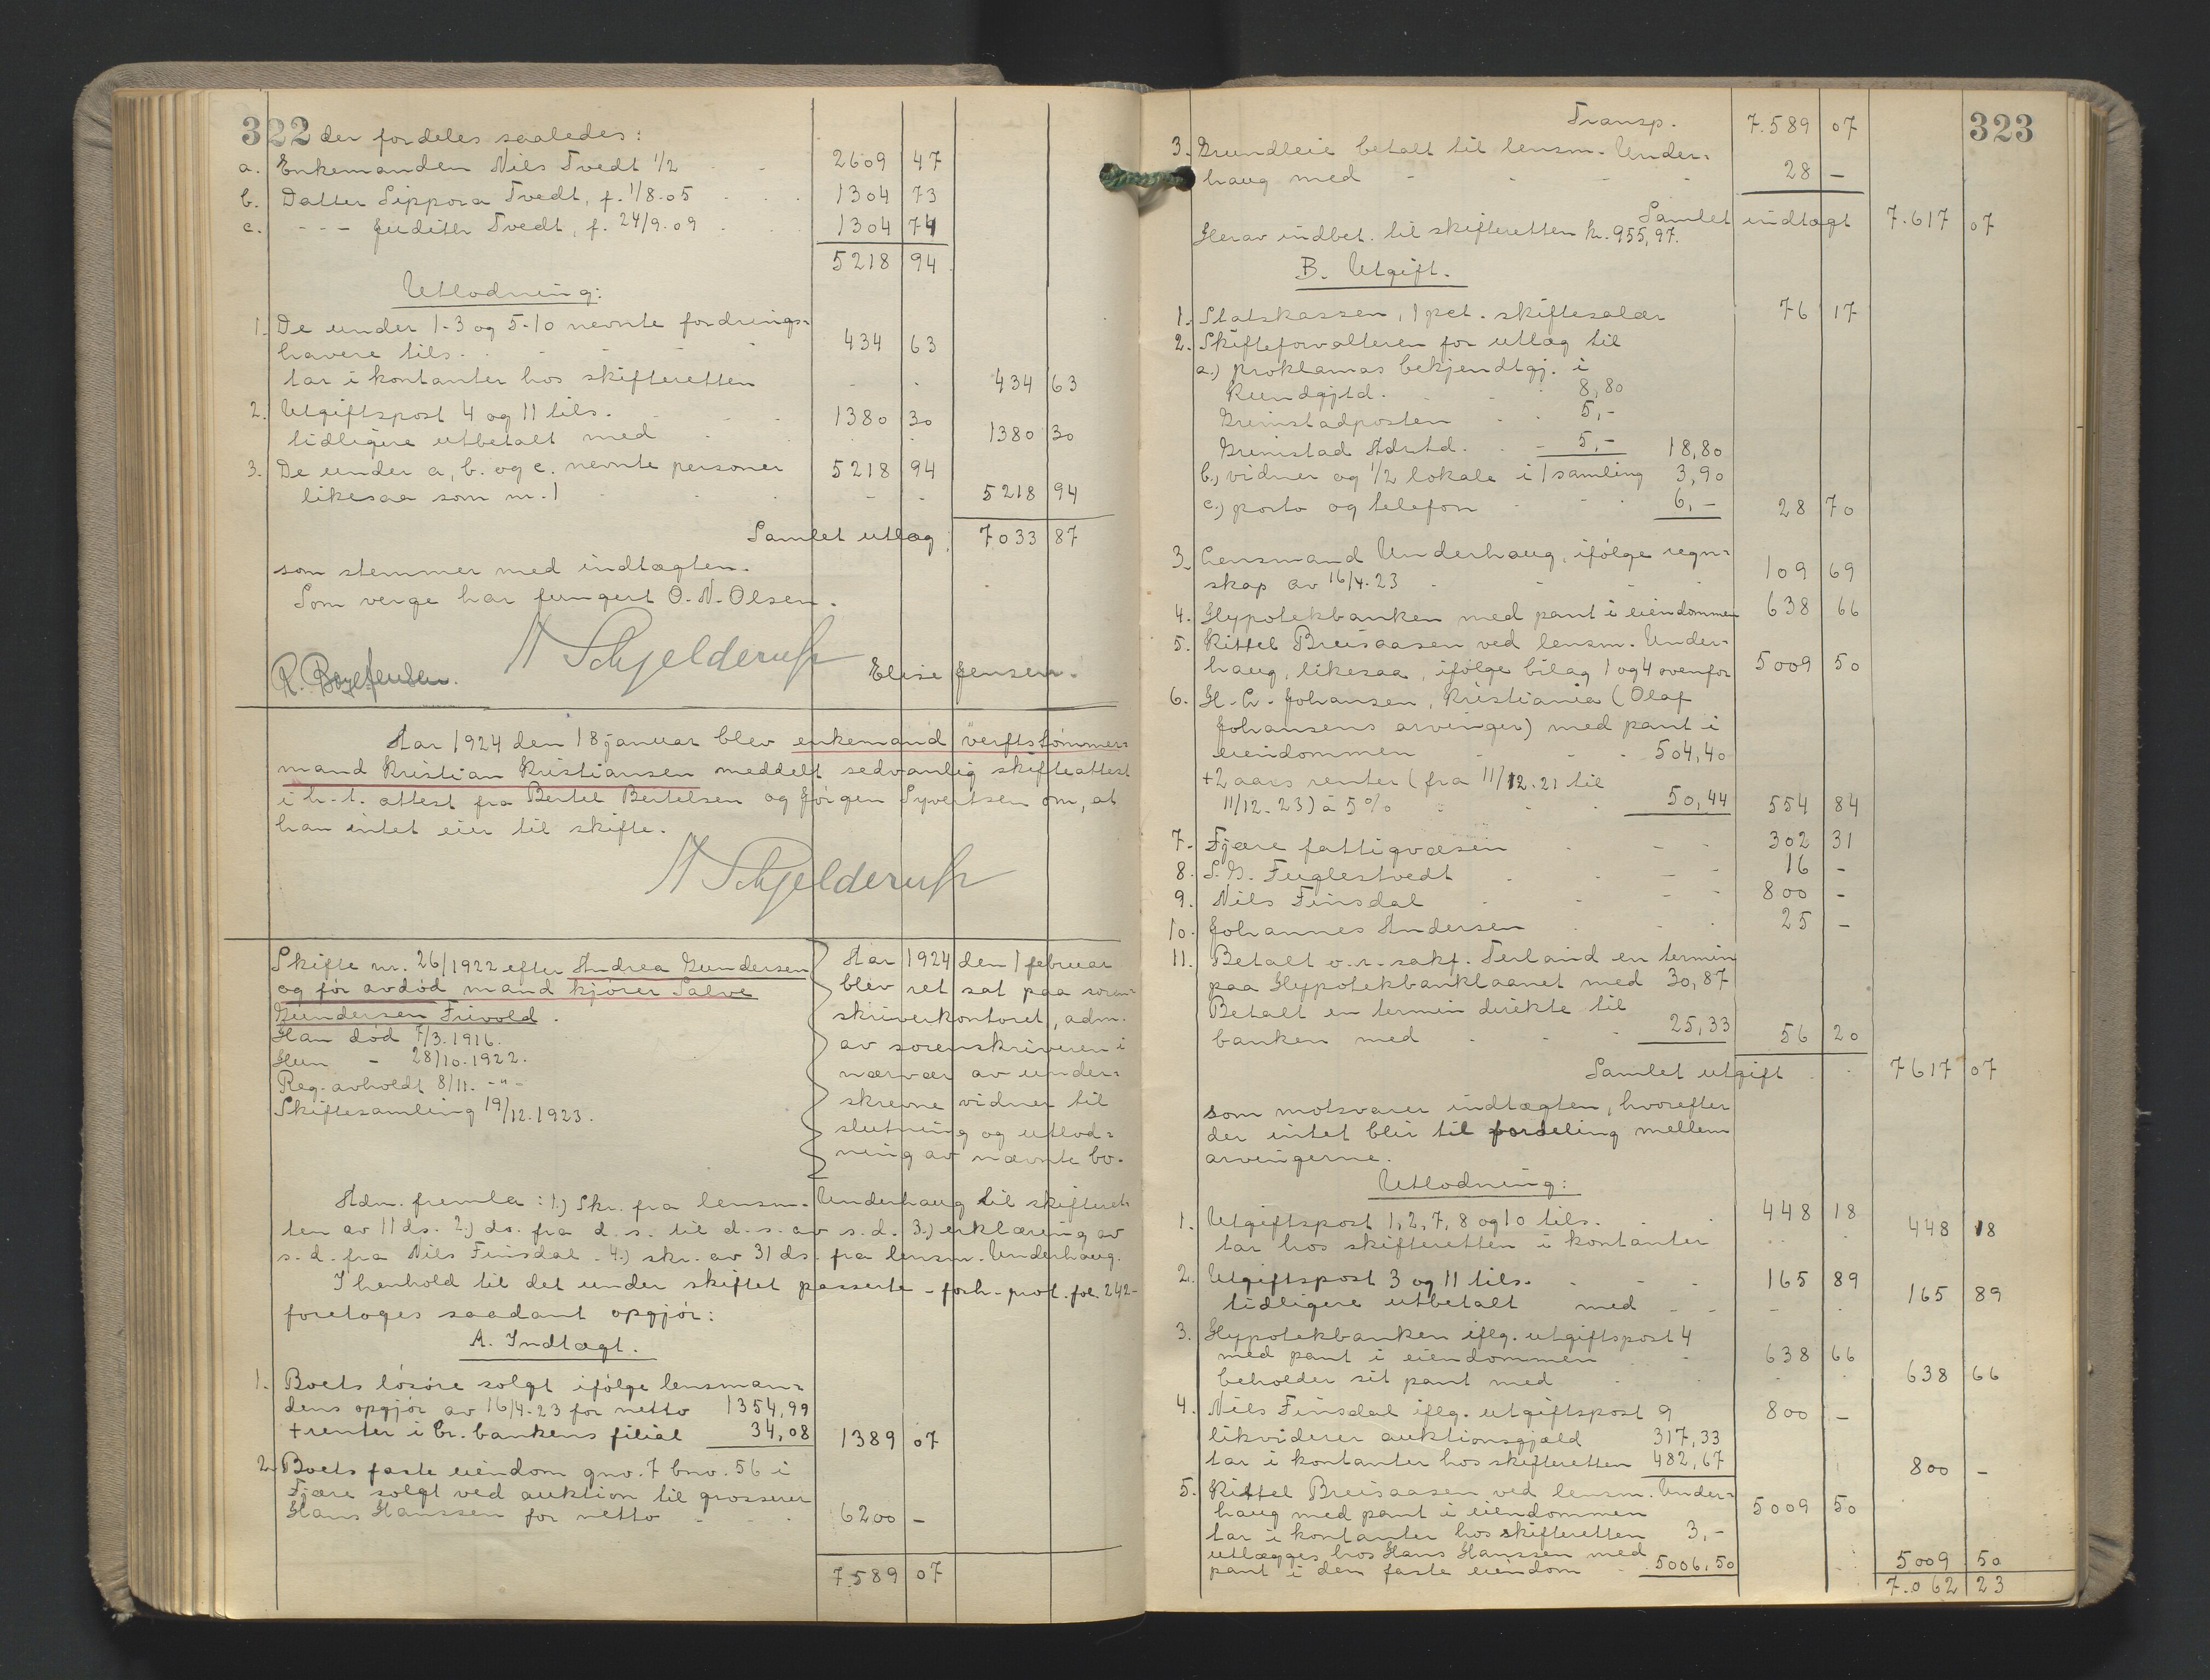 322 der fordeles saaledes:
a. Enkemanden Nils Tvedt 1/2 2609 47
b. Datter Sippora Tvedt, f. 1/8-05 1304 73
c. --- Judith Tvedt, f. 24/9-09 1304 74
5218 94
Utlodning:
1. De under 1-3 og 5-10 nevnte fordrings-
havere tils. 434 63
tar i kontanter hos skifteretten 434 63
2. Utgiftspost 4 og 11 tils. 1380 30
tidligere utbetalt med 1380 30
3. De under a, b. og c. nevnte personer 5218 94
likesaa som nr. 1 5218 94
Samlet utlæg 7033 87
som stemmer med indtægten.
Som verge har fungert O. N. Olsen.
Schjelderup
R. Boye Jensen. Elise Jensen.
Aar 1924 den 18 januar blev enkemand verftstømmer-
mand Kristian Kristiansen meddelt sedvanlig skifteattest
i h.t. attest fra Bertel Bertelsen og Jørgen Syvertsen om, at
han intet eier til skifte.
Schjelderup
Skifte nr. 26/1922 efter Andrea Gundersen
og før avdød mand kjører Salve
Gundersen Frivold.
Han død 7/3. 1916.
Hun - 28/10. 1922.
Reg. avholdt 8/11. -"-
Skiftesamling 19/12. 1923.
Aar 1924 den 1 februar
blev ret sat paa soren-
skriverkontoret, adm.
av sorenskriveren i
nærvær av under-
skrevne vidner til
slutning og utlod-
ning av nævnte bo.
Adm. fremla: 1.) Skr. fra lensm. Underhaug til skifteret-
ten av 11 ds. 2.) do. fra d. s. til d. s. av s. d. 3.) erklæring av
s. d. fra Nils Finsdal. 4.) skr. av 31 ds. fra lensm. Underhaug.
I henhold til det under skiftet passerte - forh. prot. fol. 242-
foretages saadant opgjør:
A. Indtægt.
1. Boets løsøre solgt ifølge lensman-
dens opgjør av 16/4-23 for netto 1354,99
+ renter i br. bankens filial 34,08 1389 07
2. Boets faste eiendom gno. 7 bno. 56 i
Fjære solgt ved auktion til grosserer
Hans Hanssen for netto 6200 -
7.589 07
323
Transp. 7.589 07
3. Grundleie betalt til lensm. Under-
haug med 28 -
Samlet indtægt 7.617 07
Herav indbet. til skifteretten kr. 955,97.
B. Utgift.
1. Statskassen, 1 pct. skiftesalær 76 17
2. Skifteforvalteren for utlæg til
a.) proklamas bekjendtgj. i
Kundgjtd. 8,80
Grimstadposten 5,-
Grimstad Adrtd. 5,- 18,80
b.) vidner og 1/2 lokale i 1 samling 3,90
c.) porto og telefon 6,- 28 70
3. Lensmand Underhaug, ifølge regn-
skap av 16/4-23 109 69
4. Hypotekbanken med pant i eiendommen 638 66
5. Kittel Breisaasen ved lensm. Under-
haug, likesaa, ifølge bilag 1 og 4 ovenfor 5009 50
6. H. Chr. Johansen, Kristiania (Olaf
Johansens arvinger) med pant i
eiendommen 504,40
+ 2 aars renter (fra 11/12-21 til
11/12-23) à 5% 50,44 554 84
7. Fjære fattigvæsen 302 31
8. S. G. Fuglestvedt 16 -
9. Nils Finsdal 800 -
10. Johannes Andersen 25 -
11. Betalt o.r.sakf. Terland en termin
paa Hypotekbanklaanet med 30,87
Betalt en termin direkte til
banken med 25,33 56 20
Samlet utgift 7617 07
som motsvarer indtægten, hvorefter
der intet blir til fordeling mellem
arvingerne.
Utlodning:
1. Utgiftspost 1, 2, 7, 8 og 10 tils. 448 18
tar hos skifteretten i kontanter 448 18
2. Utgiftspost 3 og 11 tils. 165 89
tidligere utbetalt med 165 89
3. Hypotekbanken iflg. utgiftspost 4
med pant i eiendommen 638 66
beholder sit pant med 638 66
4. Nils Finsdal iflg. utgiftspost 9 800 -
likviderer auktionsgjæld 317,33
tar i kontanter hos skifteretten 482,67 800 -
5. Kittel Breisaasen ved lensm. Under-
haug med pant i eiendommen 5009 50
tar i kontanter hos skifteretten 3,-
utlægges hos Hans Hanssen med
pant i den faste eiendom 5006,50 5009 50
7.062 23